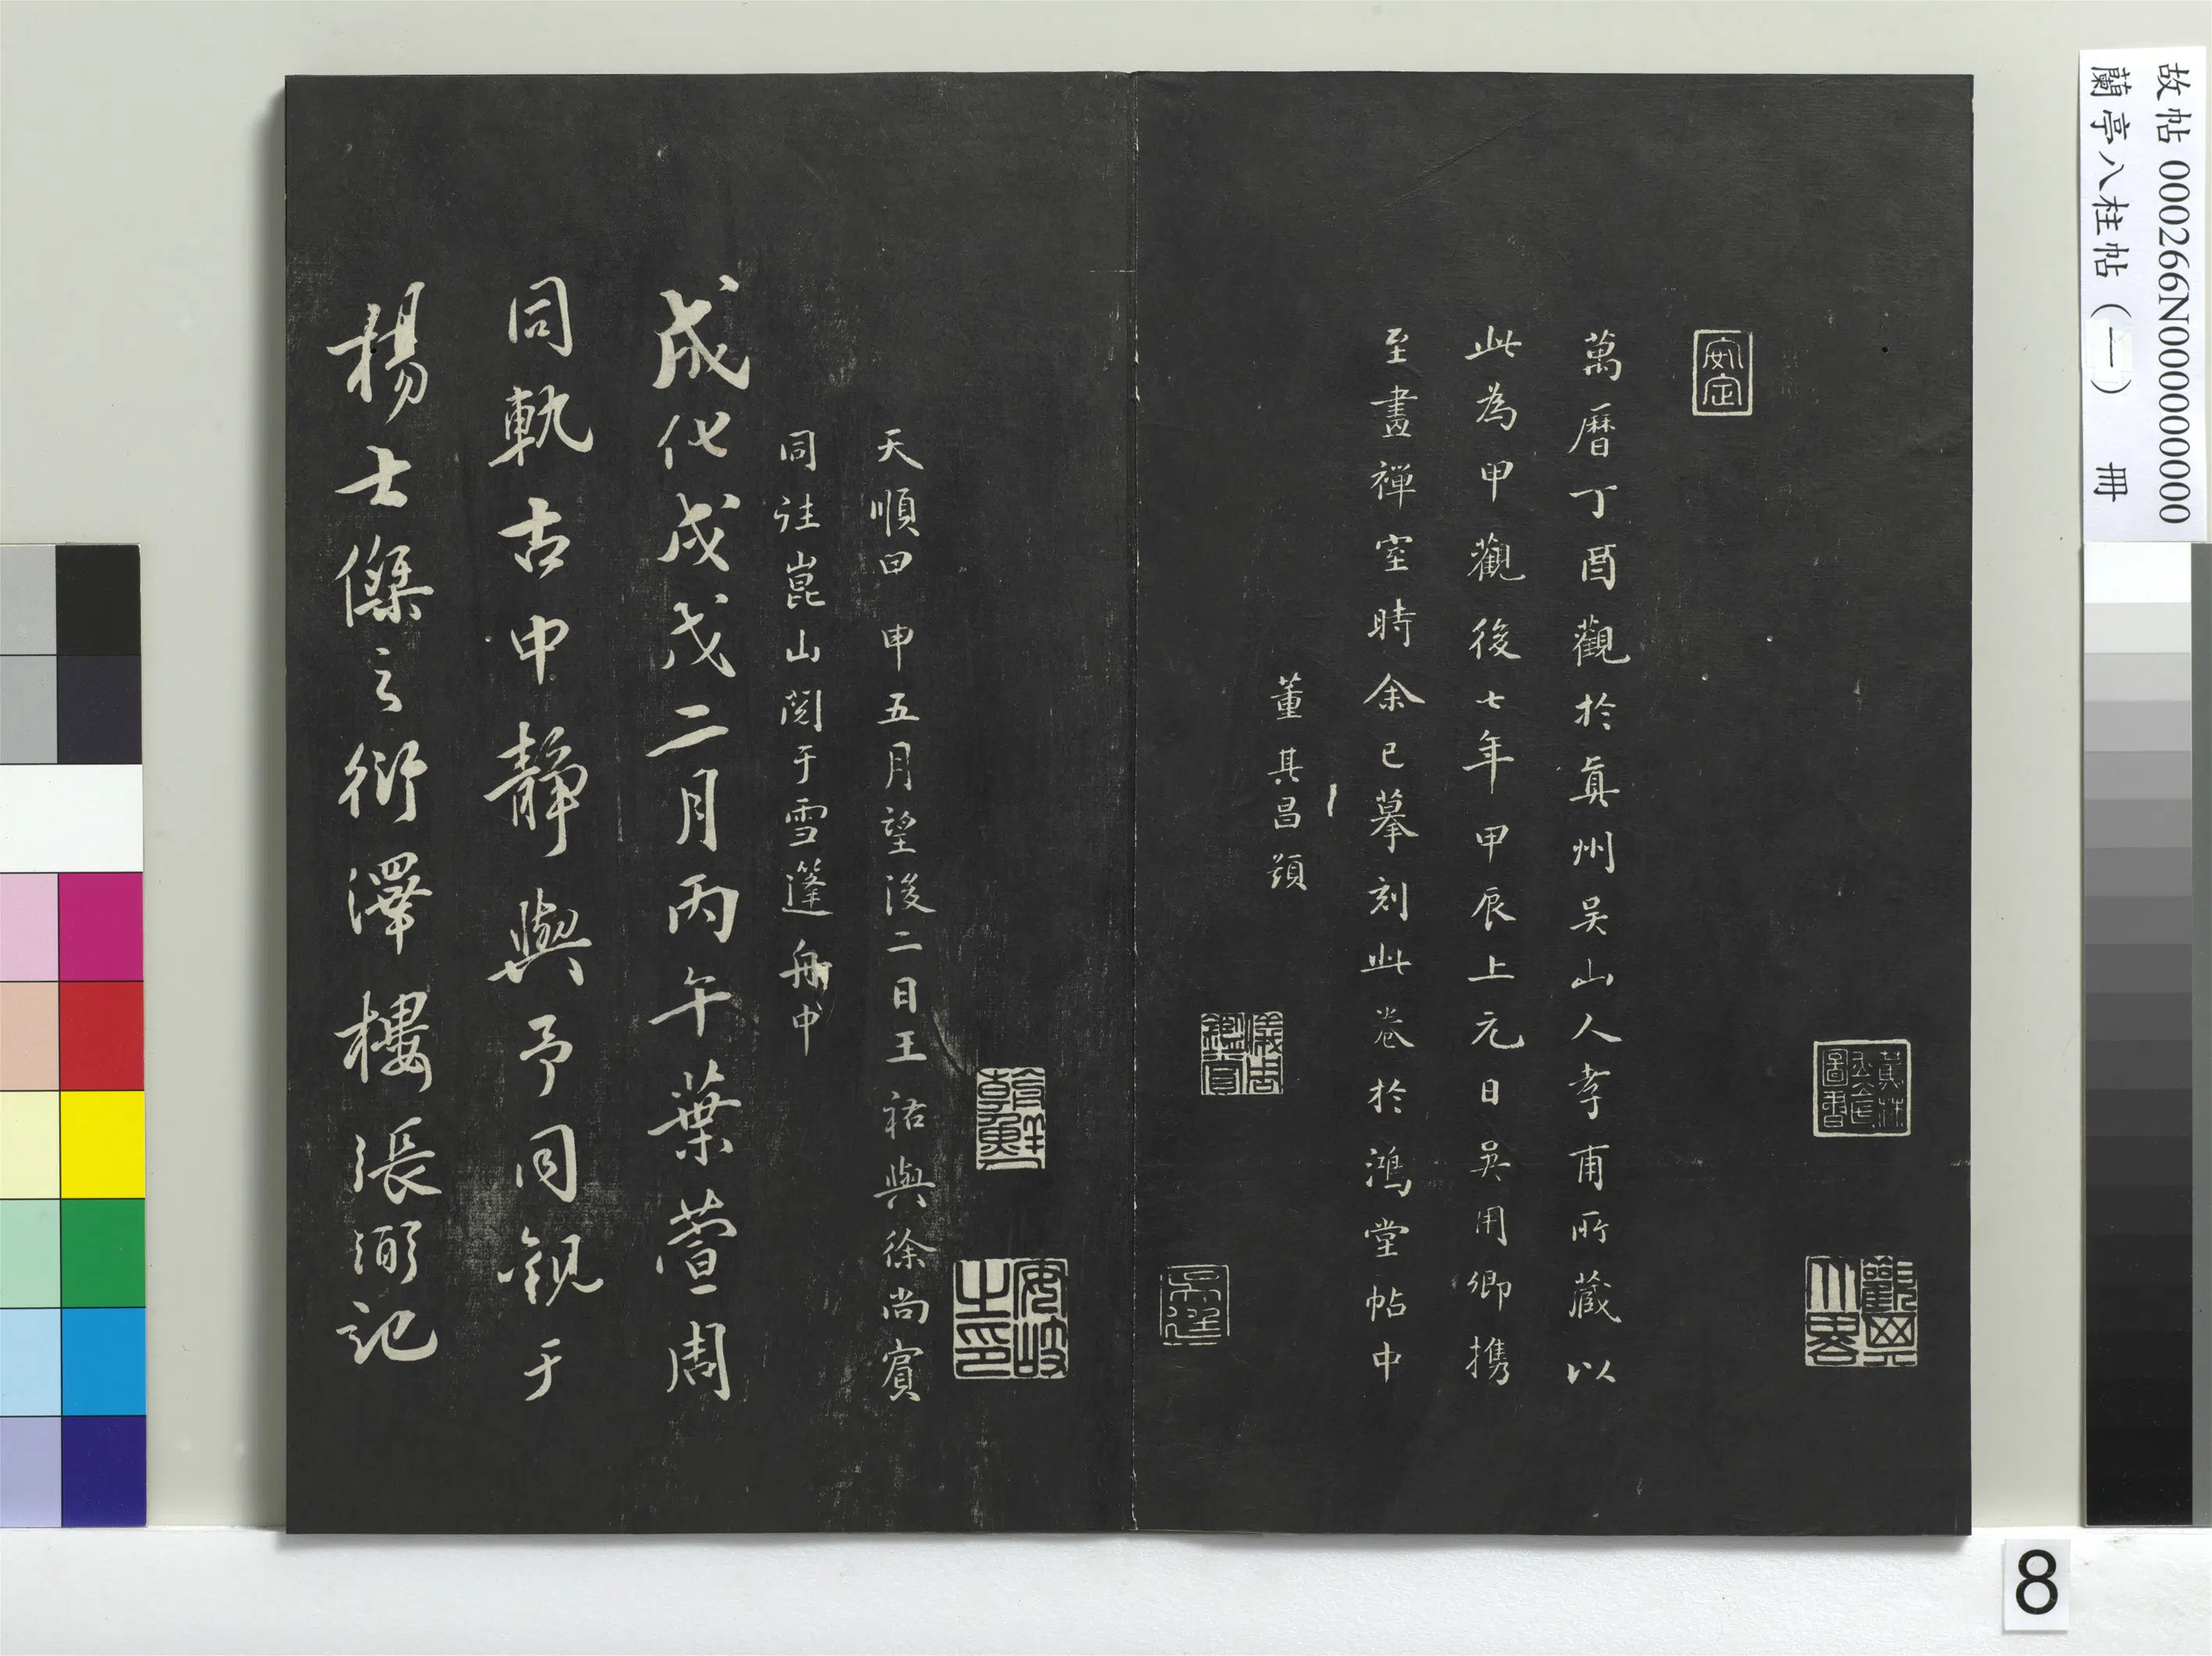 故帖 000266N000000000
蘭亭八柱帖（一） 冊
安定
萬曆丁酉觀於真州吳山人孝甫所藏以
此為甲觀後七年甲辰上元日吳用卿携
至畫禪室時余已摹刻此卷於鴻堂帖中
董其昌題
儀周鑑賞
吳廷
朝鮮
安岐之印
天順甲申五月望後二日王祐與徐尚賓
同往崑山閱于雪篷舟中
成化戊戌二月丙午葉萱周
同軌古中靜與予同觀于
楊士傑之衍澤樓張弼記
8